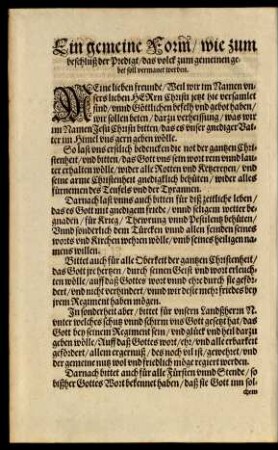 Ein gemeine Form / wie zum
beschluß der Predigt / das volck zum gemeinen ge-
bet soll vermanet werden.
MEine lieben freunde / Weil wir im Namen vn-
sers lieben HERrn Christi jetzt hie versamlet
sind / vnnd Göttlichen befelh vnd gebot haben /
wir sollen beten / darzu verheissung / was wir
im Namen Jesu Christi bitten / das es vnser gnediger Vat-
ter im Himel vns gern geben wölle.
So last vns erstlich bedencken die not der gantzen Chri-
stenheit / vnd bitten / das Gott vns sein wort rein vnnd lau-
ter erhalten wölle / wider alle Rotten vnd Ketzereyen / vnd
seine arme Christenheit gnediglich behüten / wider alles
fürnemen des Teufels vnd der Tyrannen.
Darnach last vnns auch bitten für diß zeitliche leben /
das es Gott mit gnedigem friede / vnnd seligem wetter be-
gnaden / für Krieg / Thewrung vnnd Pestilentz behüten /
Vnnd sonderlich dem Türcken vnnd allen feinden seines
worts vnd Kirchen wehren wölle / vmb seines heiligen na-
mens willen.
Bittet auch für alle Oberkeit der gantzen Christenheit /
das Gott jre hertzen / durch seinen Geist vnd wort erleuch-
ten wölle / auff daß Gottes wort vnnd ehr durch sie gefür-
dert / vnd nicht verhindert / vnnd wir deste mehr friedes bey
jrem Regiment haben mögen.
In sonderheit aber / bittet für vnsern Landßherrn N.
vnter welches schutz vnnd schirm vns Gott gesetzt hat / das
Gott bey seinem Regiment sein / vnd glück vnd heil darzu
geben wölle / Auff daß Gottes wort / ehr / vnd alle erbarkeit
gefördert / allem ergernuß / des noch vil ist / gewehret / vnd
der gemeine nutz wol vnd friedlich möge regiert werden.
Darnach bittet auch für alle Fürsten vnnd Stende / so
bißher Gottes Wort bekennet haben / daß sie Gott inn sol-
chem